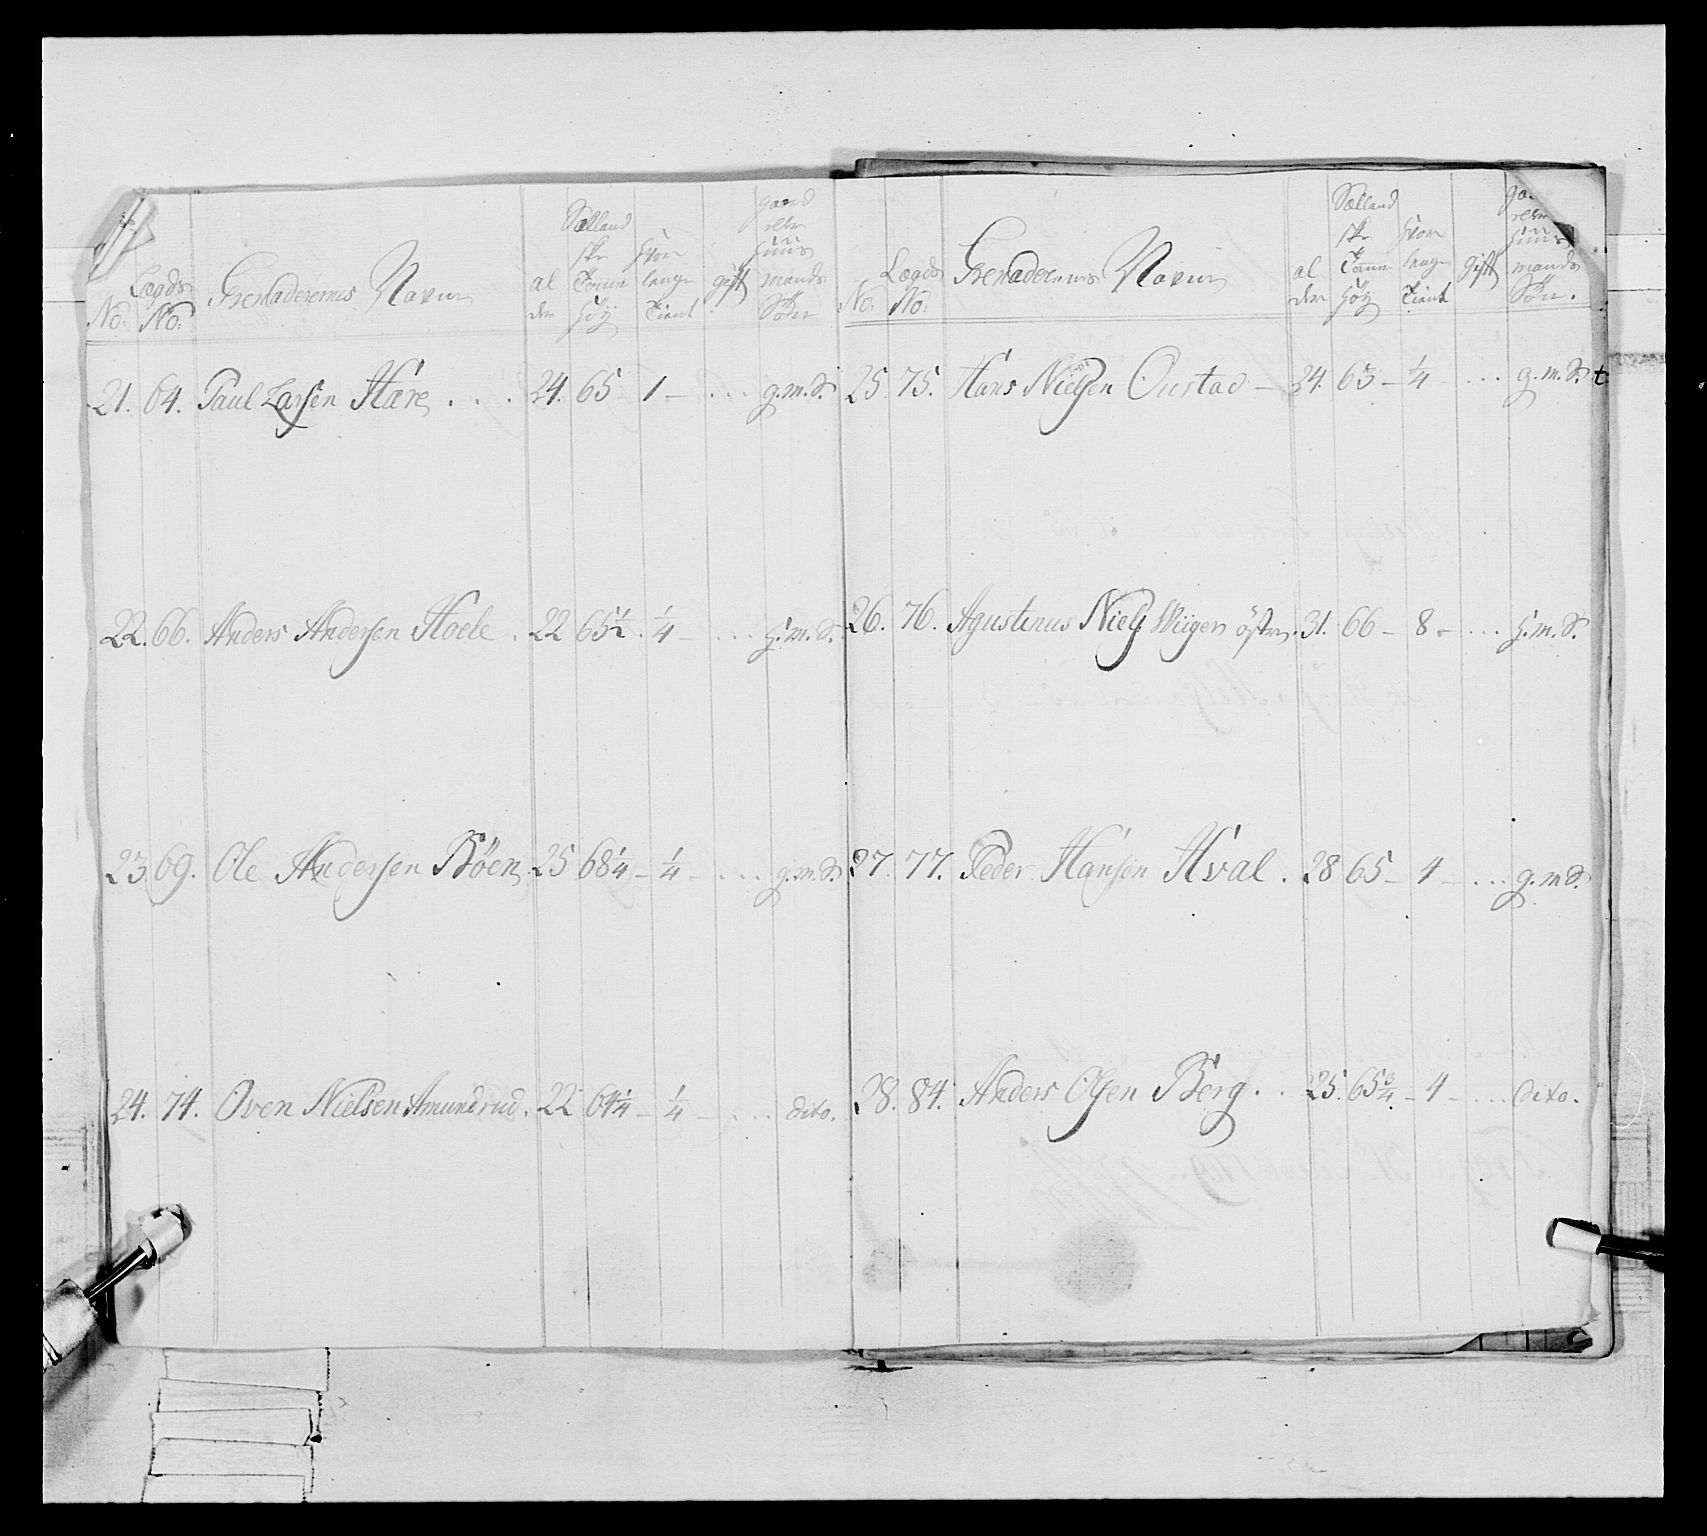 No: Lægds No: Grenaderernes Navne al der Sællandske Tomme Høy hvor lenge Tient gift gaard eller Huus mands Søn
21. 64. Paul Larsen Hære . . . 24. 65 - 1 - . . . g.m.S.
22. 66. Anders Andersen Hoele . 22 65 1/2 . 1/4 - . . . h.m.S.
23. 69. Ole Andersen Böen . 25 68 1/4 - 1/4 - . . . g.m.S.
24. 74. Oven Nielsen Amundrud . 22 64 1/4 - 1/4 - . . . dito.
No: Lægds No: Grenaderernes Navne al der Sællandske Tomme Høy hvor lenge Tient gift eller Huus mands Søn.
25. 75. Hans Nielsen Oustad - 24. 63 - 1/4 - . . . g.m.S. t
26. 76. Agustinus Niels Wiigen östre . 31. 66 - 8 - . . . h.m.S.
27. 77. Peder Hansen Hval . 28 65 - 4 - . . . g.m.S.
28. 84. Anders Olsen Berg . . 25. 65 3/4 - 4 - . . . dito.